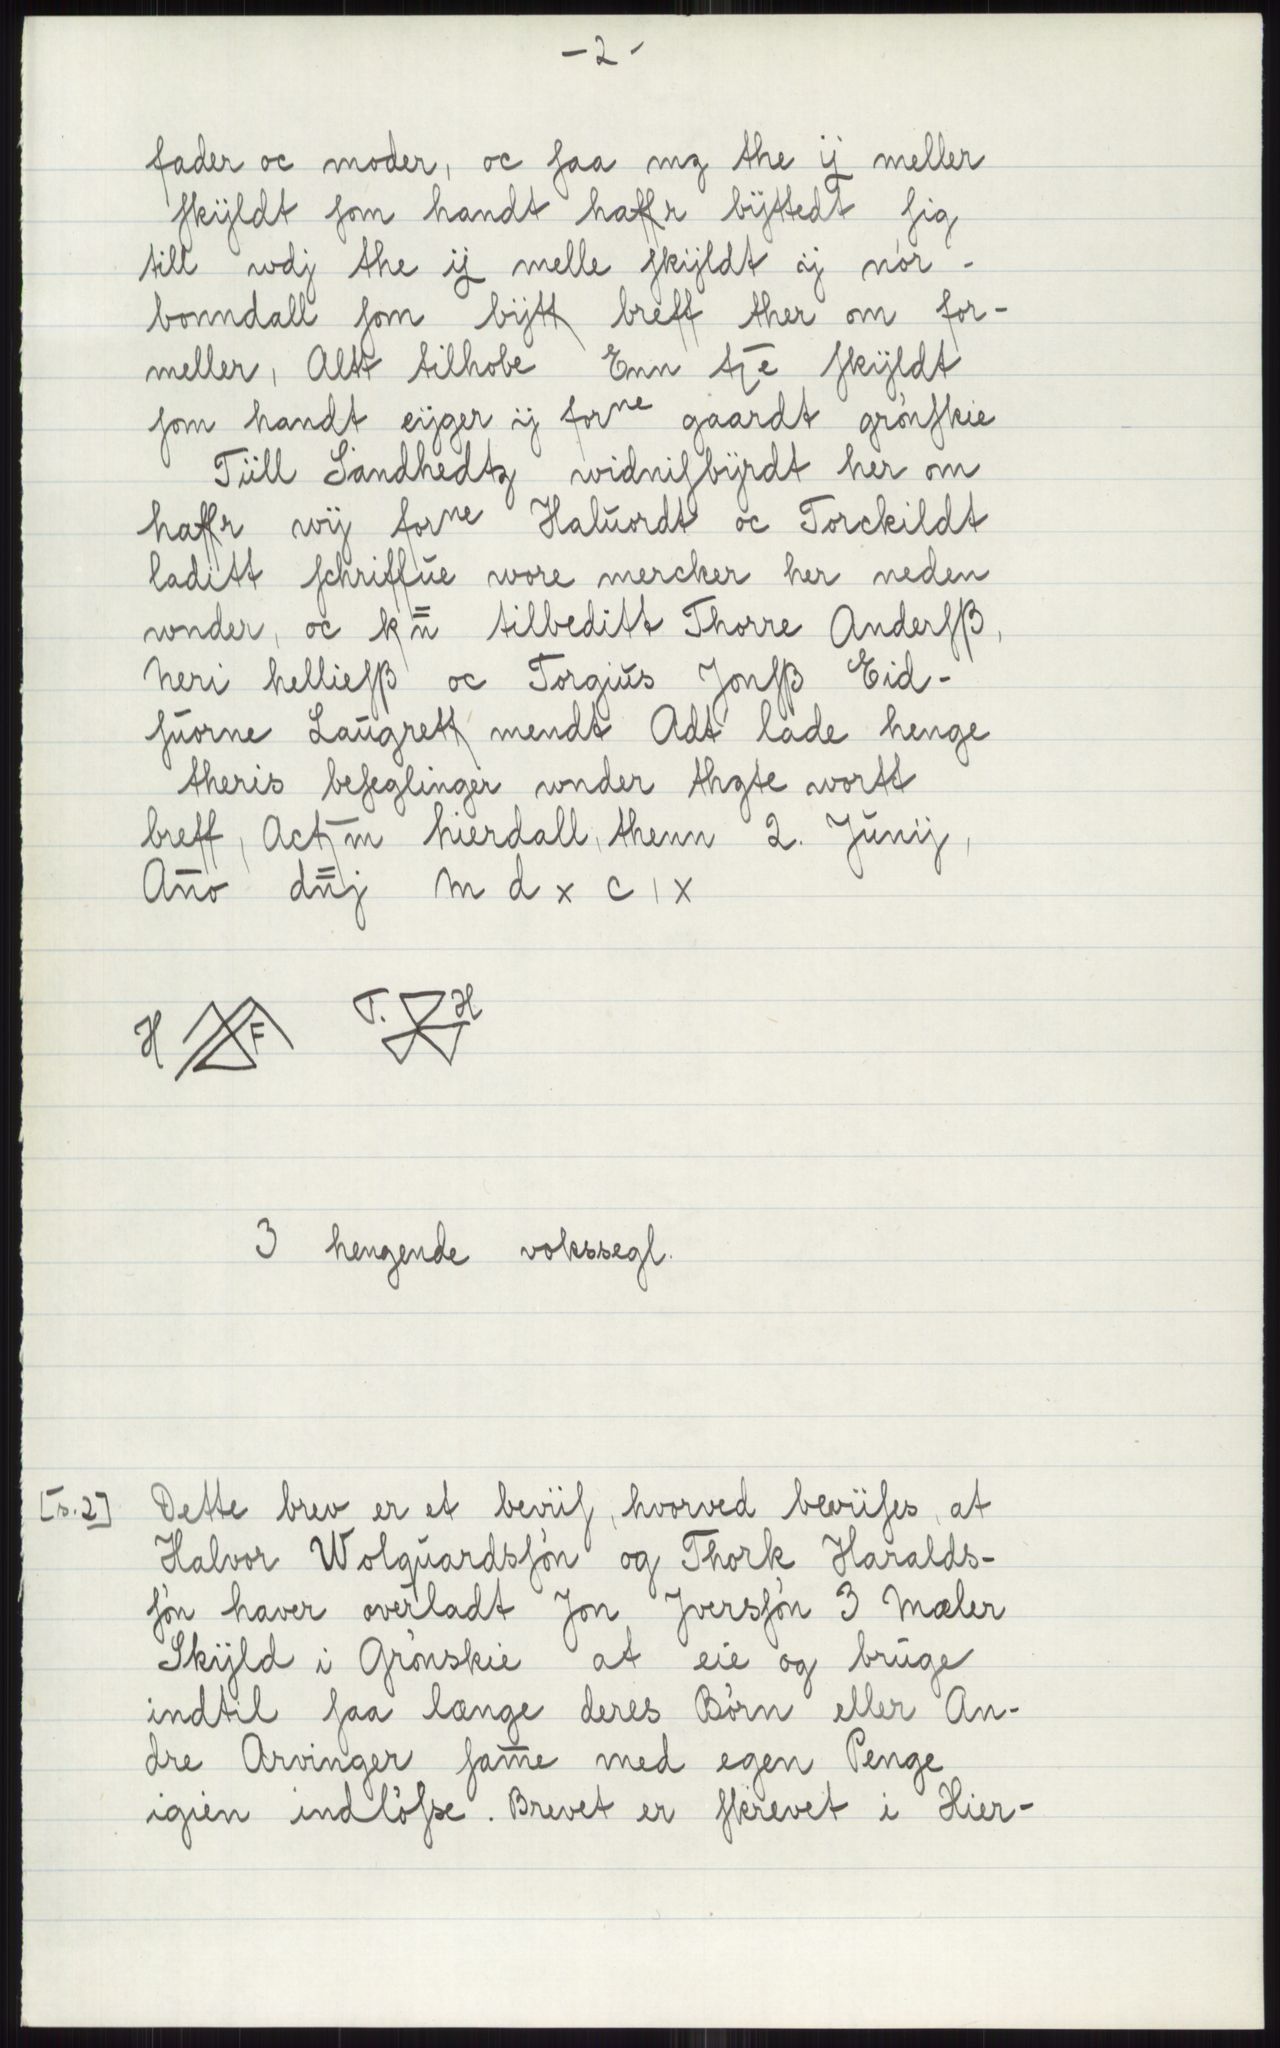 -2-
fader oc moder, oc ſaa mz the ij meller
ſkÿldt ſom handt haffr bÿttedt ſig
till wdj the ij melle ſkÿldt ij nór-
bonndall ſom bÿtt breff ther om for-
meller, Altt tilhobe Enn ſkÿldt
ſom handt eÿger ij forne gaardt grónſkie
Tüll Sandhedtz widniſbÿrdt her om
haffr wÿ forne Haluordt oc Torckildt
laditt ſchriffue wore mercker her neden
wnder, oc tilbeditt Thorre Anderſß,
Neri hellieſß oc Torgius Jonſß Eid-
ſuorne Laugrett mendt Adt lade henge
theris beſeglinger wnder thzte wortt
breff, Actm hierdall, thenn 2. Junij,
An̄o dn̄j m d x c ı x
H F T. H
3 hengende vokssegl.
[s. 2] Dette brev er et beviiſ, hvorved beviiſes, at
Halvor Wolquardsſón og Thork Haralds-
ſón haver overladt Jon Jversſón 3 Mæler
Skÿld i Grónskie at eie og bruge
indtil ſaa længe deres Bórn eller An-
dre Arvinger ſam̄e med egen Penge
igien indlóſse. Brevet er ſkrevet i Hier-